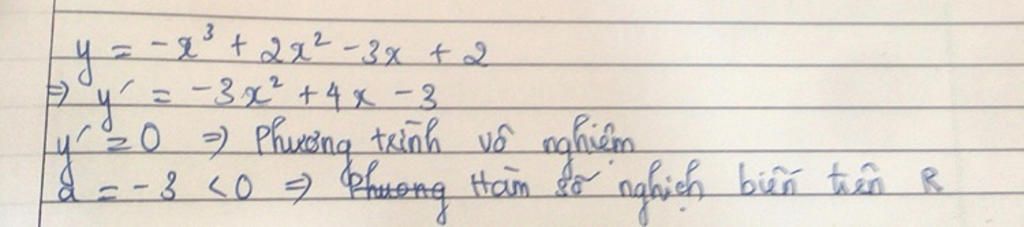 y = -x³ + 2x² - 3x + 2
⇒ y' = -3x² + 4x - 3
y' = 0 ⇒ Phương trình vô nghiệm
a = -3 < 0 ⇒ Phương Hàm số nghịch biến trên R